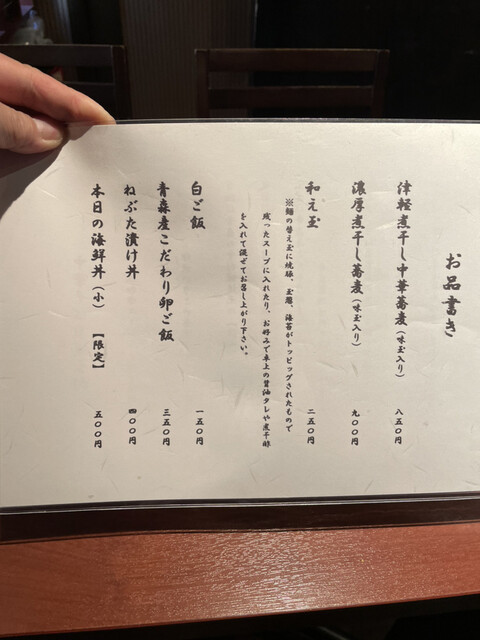 お品書き
津軽煮干し中華蕎麦（味玉入り） 八五〇円
濃厚煮干し蕎麦（味玉入り） 九〇〇円
和え玉 二五〇円
※麺の替え玉に焼豚、玉葱、海苔がトッピングされたもので
残ったスープに入れたり、お好みで卓上の醤油タレや煮干酢
を入れて混ぜてお召し上がり下さい。
白ご飯 一五〇円
青森産こだわり卵ご飯 三五〇円
ねぶた漬け丼 四〇〇円
本日の海鮮丼（小）【限定】 五〇〇円